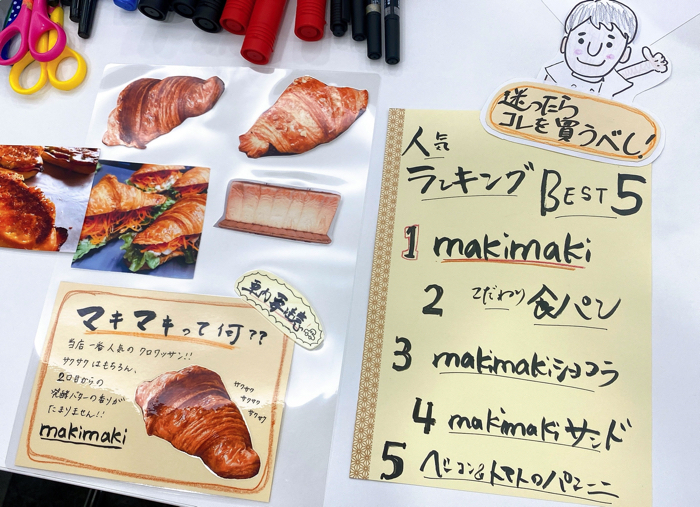 迷ったら
コレを買うべし!
人気
ランキング BEST 5
1 makimaki
2 こだわり食パン
3 makimakiショコラ
4 makimakiサンド
5 ベーコン&トマトのパニーニ
マキマキって何??
当店一番人気のクロワッサン!!
サクサクはもちろん、
2口目からの
発酵バターの香りが
たまりません!!
makimaki
サクサク
サクサク
サクサク